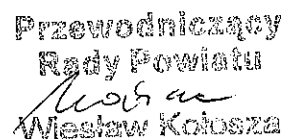 Przewodniczący
Rady Powiatu
Wiesław Kołosza